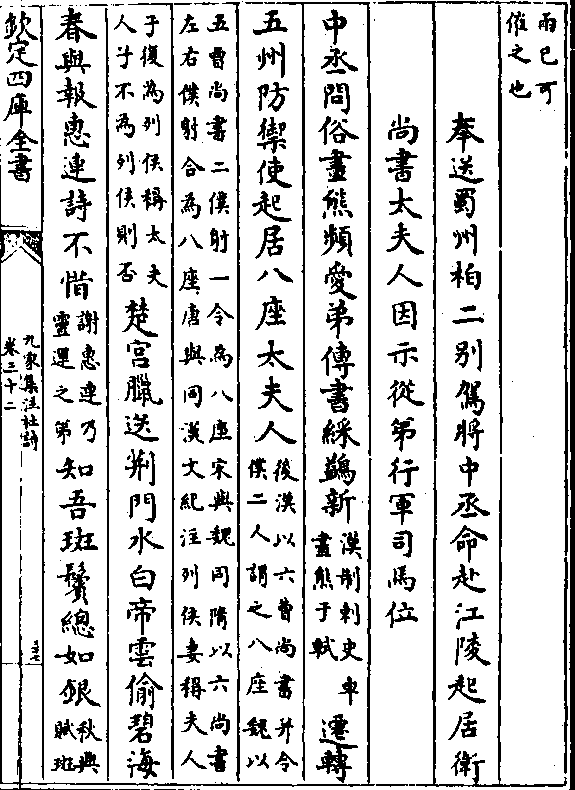 雨已可
催之也
奉送蜀州柏二别駕將中丞命赴江陵起居衛
尚書太夫人因示從弟行軍司馬位
中丞問俗畫熊頻愛弟傳書綵鷁新漢制刺史車畫熊于軾遷轉
五州防禦使起居八座太夫人後漢以六曹尚書并令僕二人謂之八座魏以
五曹尚書二僕射一令為八座宋與魏同隋以六尚書左右僕射合為八座唐與同漢文紀注列侯妻稱夫人
子復為列侯稱太夫人子不為列侯則否楚宫臘送荆門水白帝雲偷碧海
春與報惠連詩不惜謝惠連乃靈運之弟知吾斑鬢總如銀秋興賦班
欽定四庫全書
九家集注杜詩
卷三十二